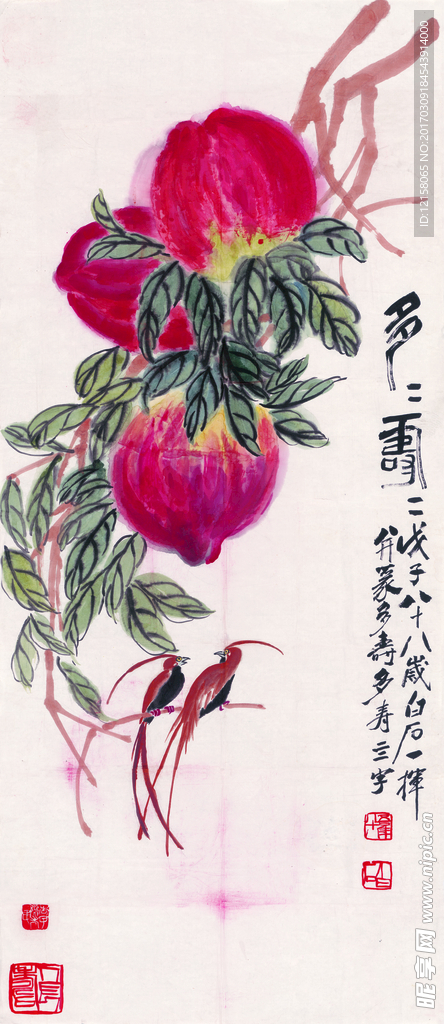 多二壽二
戊子八十八歲白石一揮
并篆多壽多壽三字
ID:12158065 NO:20170309184543914000
昵享网 www.nipic.cn